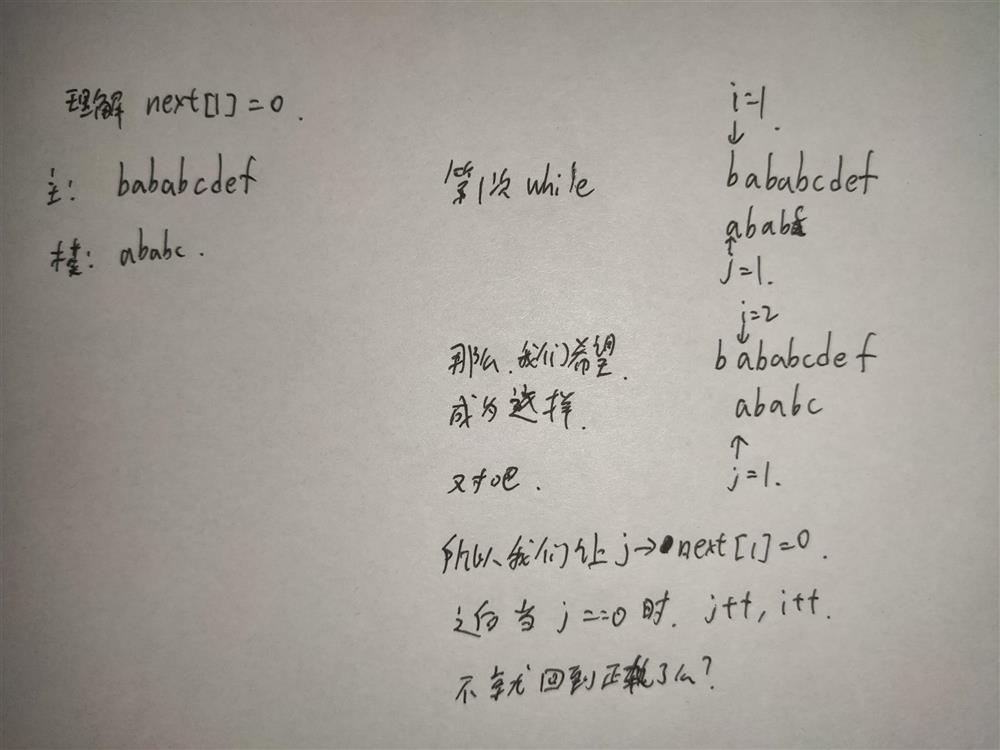 理解 next[1]=0.
主: bababcdef
模: ababc.
第1次 while
i=1.
bababcdef
abab
j=1.
那么,我们希望
成为这样
对吧.
i=2
bababcdef
ababc
j=1.
所以我们让 j→next[1]=0.
之后当 j==0 时. j++, i++.
不就回到正轨了么?